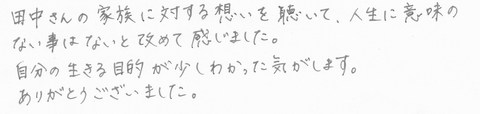 田中さんの家族に対する想いを聴いて、人生に意味の
ない事はないと改めて感じました。
自分の生きる目的が少しわかった気がします。
ありがとうございました。